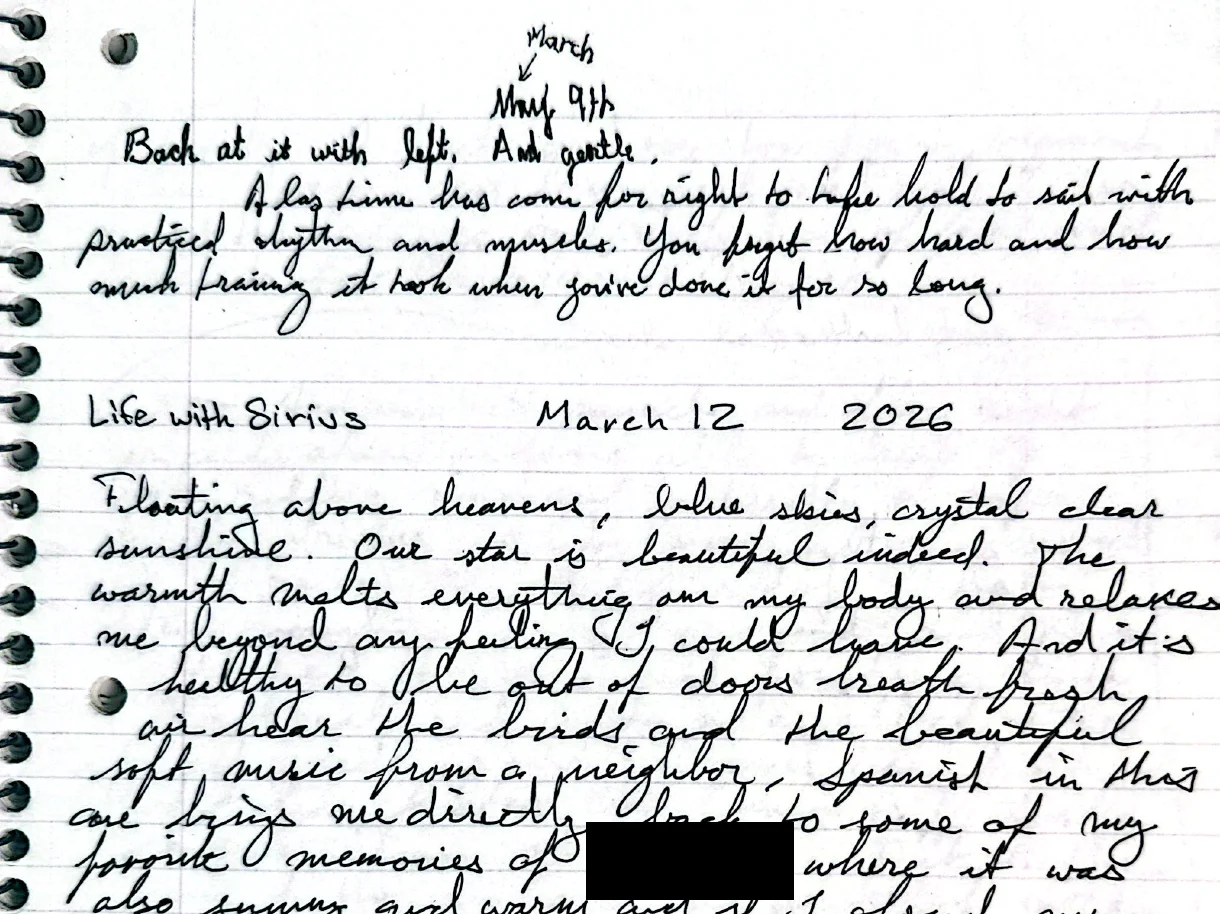 March
May 9th
Back at it with left. And gentle.
Alas time has come for right to take hold to said with
practiced rhythm and muscles. You forget how hard and how
much training it took when you've done it for so long.
Life with Sirius March 12 2026
Floating above heavens, blue skies, crystal clear
sunshine. Our star is beautiful indeed. The
warmth melts everything on my body and relaxes
me beyond any feeling I could have. And it's
healthy to be out of doors breath fresh
air hear the birds and the beautiful
soft music from a neighbor, Spanish in this
case brings me directly back to some of my
favorite memories of where it was
also sunny and warm and